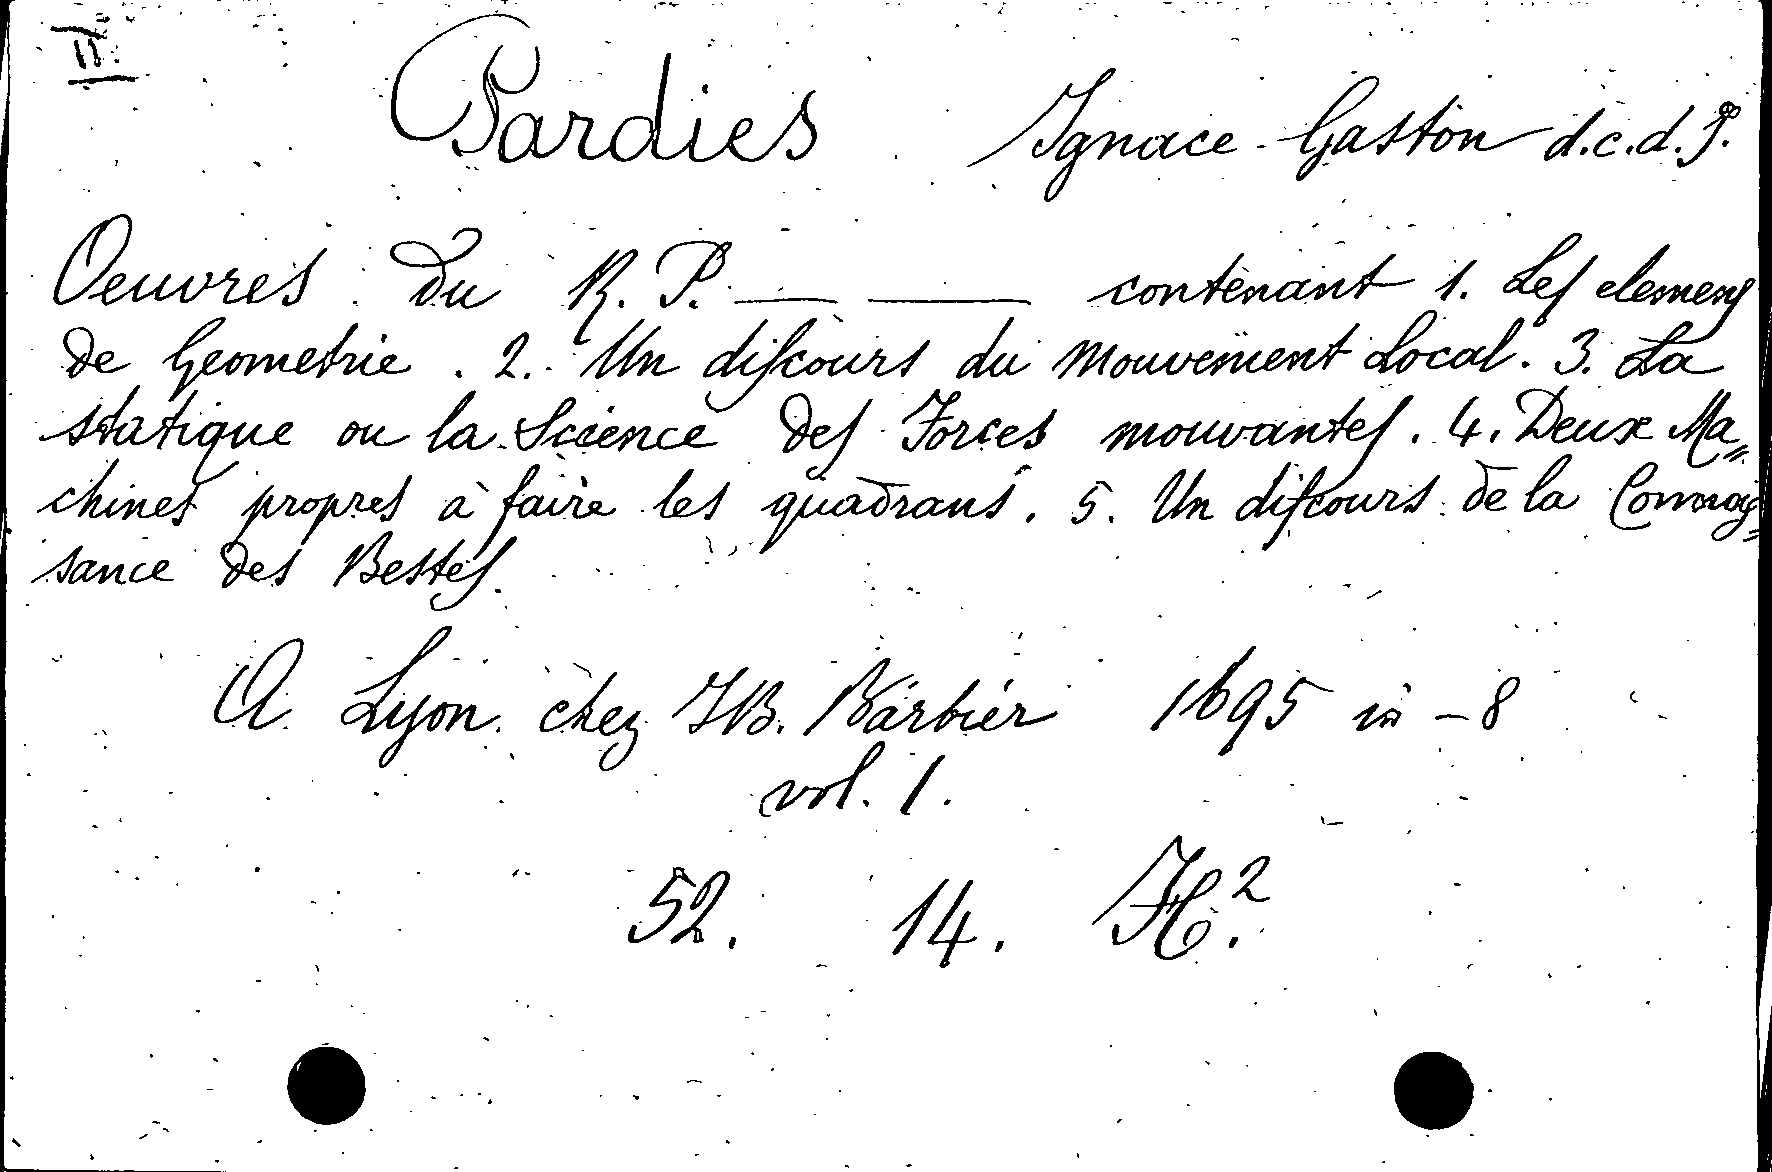 II
Pardies Ignace Gaston d.c.d.J.
Oeuvres du R. P. — — contenant 1. Les elemens
de Geometrie. 2. Un discours du mouvement Local. 3. La
statique ou la Science des Forces mouvantes. 4. Deux Ma=
chines propres à faire les quadrans. 5. Un discours de la Connois=
sance des Bestes.
A Lyon chez JB. Barbier 1695 in-8
vol. 1.
52. 14. H².